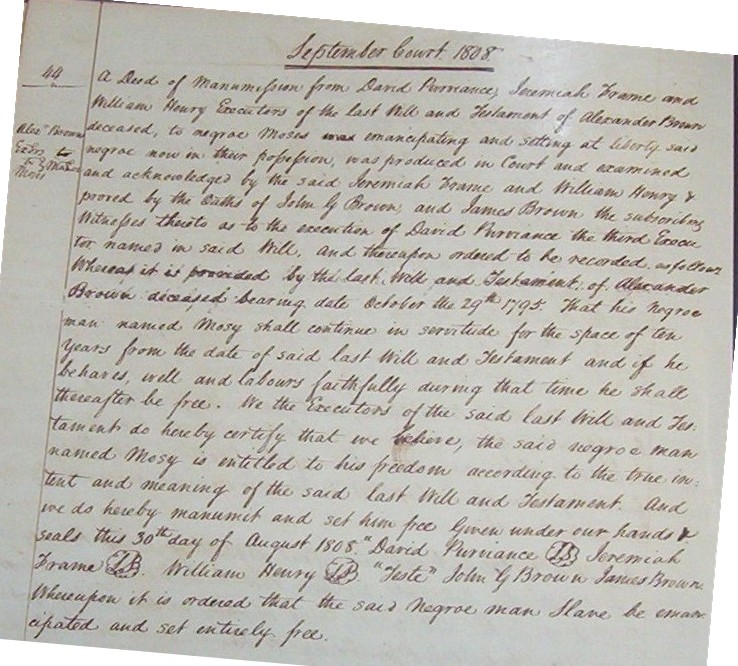 September Court 1808.
44
A Deed of Manumission from David Purviance, Jeremiah Frame and
William Henry Executors of the Last Will and Testament of Alexander Brown
deceased, to negroe Moses was emancipating and setting at liberty said
negroe now in their possession, was produced in Court and examined
and acknowledged by the said Jeremiah Frame and William Henry &
proved by the Oaths of John G Brown, and James Brown the subscribing
Witnesses thereto as to the execution of David Purviance the third Execu
tor named in said Will, and thereupon ordered to be recorded as follows
Whereas it is provided by the last Will and Testament of Alexander
Brown deceased bearing date October the 29th 1795. That his Negroe
man named Mosy shall continue in servitude for the space of ten
Years from the date of said last Will and Testament and if he
behaves, well and labours faithfully during that time he shall
thereafter be free. We the Executors of the said last Will and Tes:
tament do hereby certify that we believe, the said negroe man
named Mosy is entitled to his freedom according to the true in:
tent and meaning of the said last Will and Testament. And
we do hereby manumit and set him free Given under our hands &
seals this 30th day of August 1808. "David Purviance LS Jeremiah
Frame LS. William Henry LS "Teste" John G Brown James Brown.
Whereupon it is ordered that the said Negroe man Slave be eman
cipated and set entirely free.
Alexr Brown
Exors to
to
Moses